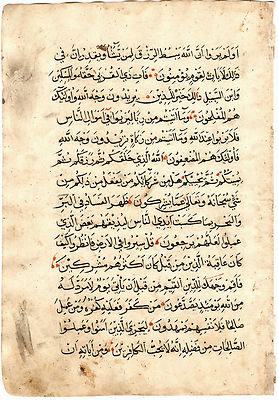 اولم يروا ان الله يبسط الرزق لمن يشاء ويقدر ان في
ذلك لايات لقوم يؤمنون فات ذا القربى حقه والمسكين
وابن السبيل ذلك خير للذين يريدون وجه الله واولئك
هم المفلحون وما اتيتم من ربا ليربوا في اموال الناس
فلا يربوا عند الله وما اتيتم من زكاة تريدون وجه الله
فاولئك هم المضعفون الله الذي خلقكم ثم رزقكم ثم
يميتكم ثم يحييكم هل من شركائكم من يفعل من ذلكم من
شيء سبحانه وتعالى عما يشركون ظهر الفساد في البر
والبحر بما كسبت ايدي الناس ليذيقهم بعض الذي
عملوا لعلهم يرجعون قل سيروا في الارض فانظروا كيف
كان عاقبة الذين من قبل كان اكثرهم مشركين
فاقم وجهك للدين القيم من قبل ان ياتي يوم لا مرد له
من الله يومئذ يصدعون من كفر فعليه كفره ومن عمل
صالحا فلانفسهم يمهدون ليجزي الذين امنوا وعملوا
الصالحات من فضله انه لا يحب الكافرين ومن اياته ان